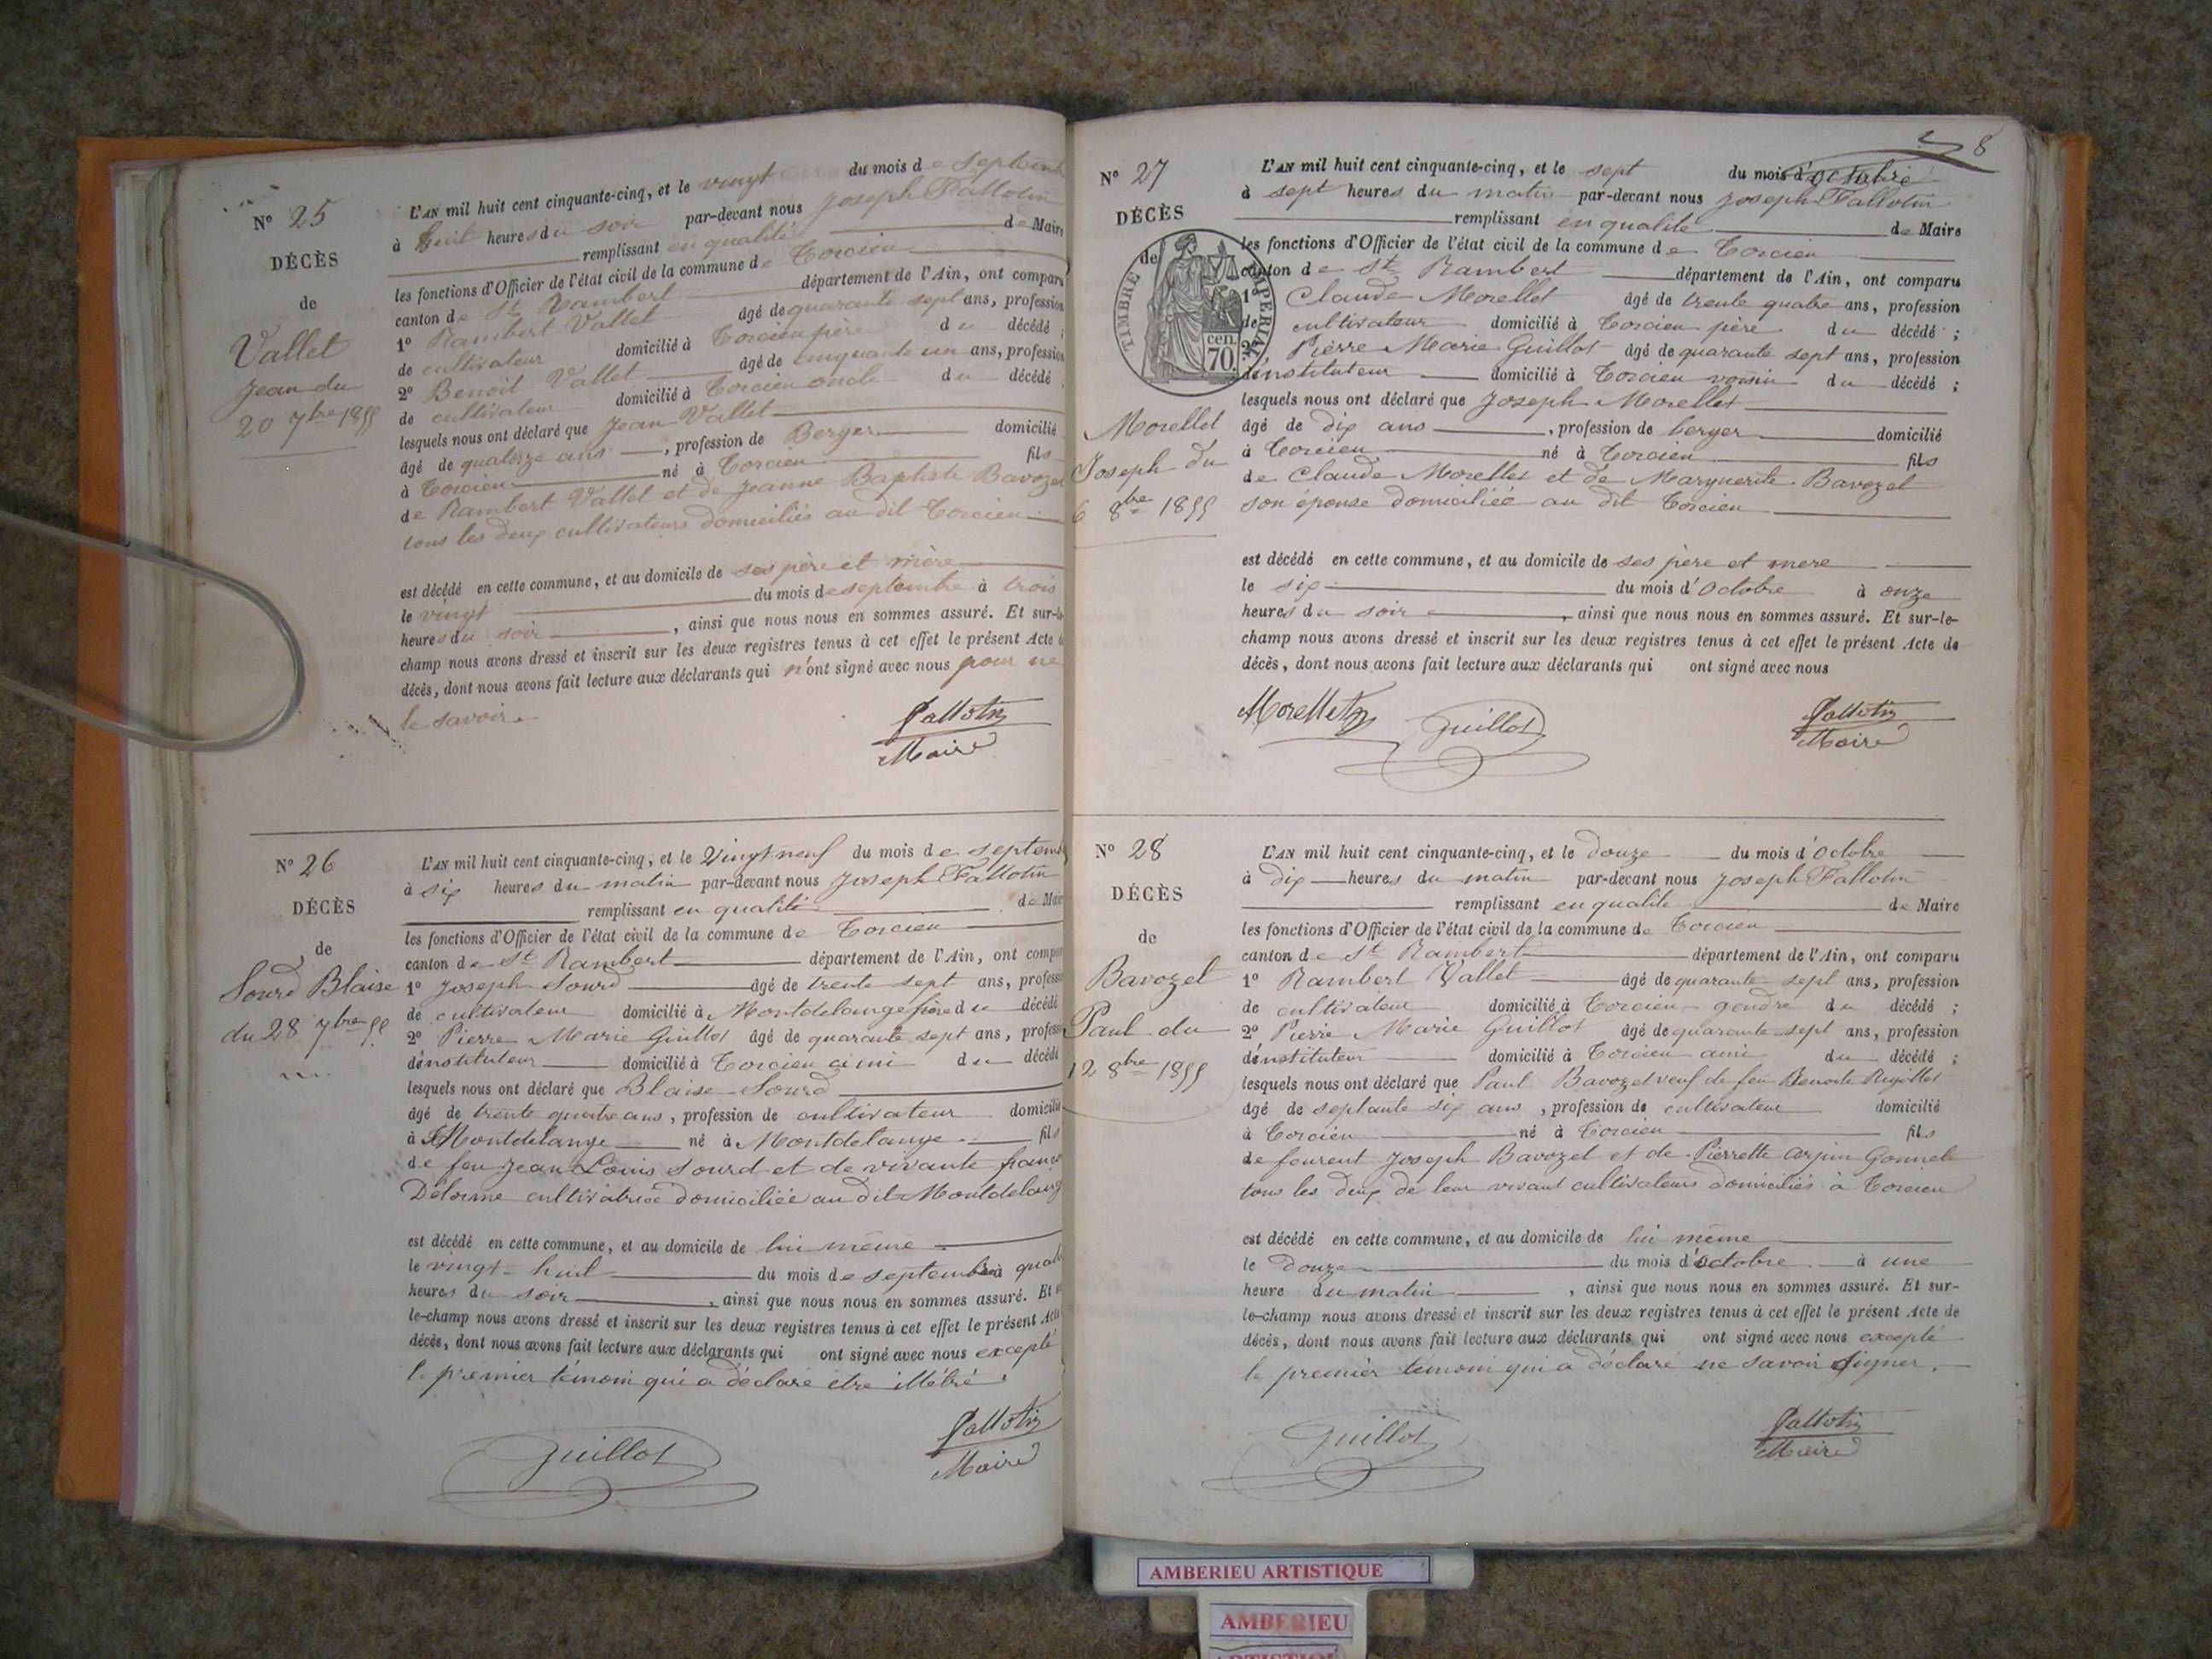 N° 25
DÉCÈS
de
Vallet
Jean du
20 7bre 1855
L'AN mil huit cent cinquante-cinq, et le vingt du mois de Septemb
à huit heures du soir par-devant nous Joseph Tallotin
remplissant en qualité de Maire
les fonctions d'Officier de l'état civil de la commune de Torcieu
canton de St Rambert département de l'Ain, ont comparu
1° Rambert Vallet âgé de quarante sept ans, profession
de cultivateur domicilié à Torcieu père du décédé ;
2° Benoit Vallet âgé de cinquante un ans, profession
de cultivateur domicilié à Torcieu oncle du décédé ;
lesquels nous ont déclaré que Jean Vallet
âgé de quatorze ans, profession de Berger domicilié
à Torcieu né à Torcieu fils
de Rambert Vallet et de Jeanne Baptiste Bavozet
tous les deux cultivateurs domiciliés au dit Torcieu
est décédé en cette commune, et au domicile de ses père et mère
le vingt du mois de septembre à trois
heures du soir, ainsi que nous nous en sommes assuré. Et sur-le-
champ nous avons dressé et inscrit sur les deux registres tenus à cet effet le présent Acte de
décès, dont nous avons fait lecture aux déclarants qui n'ont signé avec nous pour ne
le savoir.
Tallotin
Maire
N° 26
DÉCÈS
de
Sourd Blaise
du 28 7bre 55
L'AN mil huit cent cinquante-cinq, et le Vingt neuf du mois de septemb
à six heures du matin par-devant nous Joseph Tallotin
remplissant en qualité de Maire
les fonctions d'Officier de l'état civil de la commune de Torcieu
canton de St Rambert département de l'Ain, ont compar
1° Joseph Sourd âgé de trente sept ans, profess
de cultivateur domicilié à Montdelange frère du décédé
2° Pierre Marie Guillot âgé de quarante sept ans, profess
d'instituteur domicilié à Torcieu ami du décédé
lesquels nous ont déclaré que Blaise Sourd
âgé de trente quatre ans, profession de cultivateur domicilié
à Montdelange né à Montdelange fils
de feu Jean Louis Sourd et de vivante franç
Délorme cultivatrice domiciliée au dit Montdelang
est décédé en cette commune, et au domicile de lui même
le vingt-huit du mois de septembre à quat
heures du soir, ainsi que nous nous en sommes assuré. Et sur-
le-champ nous avons dressé et inscrit sur les deux registres tenus à cet effet le présent Acte
décès, dont nous avons fait lecture aux déclarants qui ont signé avec nous excepté
le premier témoin qui a déclaré etre illétré.
Guillot
Tallotin
Maire
8
N° 27
DÉCÈS
de
TIMBRE IMPERIAL
cen. 70.
Morellet
Joseph du
6 8bre 1855
L'AN mil huit cent cinquante-cinq, et le sept du mois d'octobre
à sept heures du matin par-devant nous Joseph Tallotin
remplissant en qualité de Maire
les fonctions d'Officier de l'état civil de la commune de Torcieu
canton de St Rambert département de l'Ain, ont comparu
1° Claude Morellet âgé de trente quatre ans, profession
de cultivateur domicilié à Torcieu père du décédé ;
2° Pierre Marie Guillot âgé de quarante sept ans, profession
d'instituteur domicilié à Torcieu voisin du décédé ;
lesquels nous ont déclaré que Joseph Morellet
âgé de dix ans, profession de berger domicilié
à Torcieu né à Torcieu fils
de Claude Morellet et de Marguerite Bavozet
son épouse domiciliée au dit Torcieu
est décédé en cette commune, et au domicile de ses père et mere
le six du mois d'Octobre à onze
heures du soir, ainsi que nous nous en sommes assuré. Et sur-le-
champ nous avons dressé et inscrit sur les deux registres tenus à cet effet le présent Acte de
décès, dont nous avons fait lecture aux déclarants qui ont signé avec nous
Morellet
Guillot
Tallotin
Maire
N° 28
DÉCÈS
de
Bavozet
Paul du
12 8bre 1855
L'AN mil huit cent cinquante-cinq, et le douze du mois d'Octobre
à dix heures du matin par-devant nous Joseph Tallotin
remplissant en qualité de Maire
les fonctions d'Officier de l'état civil de la commune de Torcieu
canton de St Rambert département de l'Ain, ont comparu
1° Rambert Vallet âgé de quarante sept ans, profession
de cultivateur domicilié à Torcieu gendre du décédé ;
2° Pierre Marie Guillot âgé de quarante sept ans, profession
d'instituteur domicilié à Torcieu ami du décédé ;
lesquels nous ont déclaré que Paul Bavozet veuf de feu Benoite
âgé de septante six ans, profession de cultivateur domicilié
à Torcieu né à Torcieu fils
de feurent Joseph Bavozet et de Pierrette Arpin Gonnet
tous les deux de leur vivant cultivateurs domiciliés à Torcieu
est décédé en cette commune, et au domicile de lui même
le douze du mois d'octobre à une
heure du matin, ainsi que nous nous en sommes assuré. Et sur-
le-champ nous avons dressé et inscrit sur les deux registres tenus à cet effet le présent Acte de
décès, dont nous avons fait lecture aux déclarants qui ont signé avec nous excepté
le premier témoin qui a déclaré ne savoir signer.
Guillot
Tallotin
Maire
AMBERIEU ARTISTIQUE
AMBERIEU
ARTISTIQUE